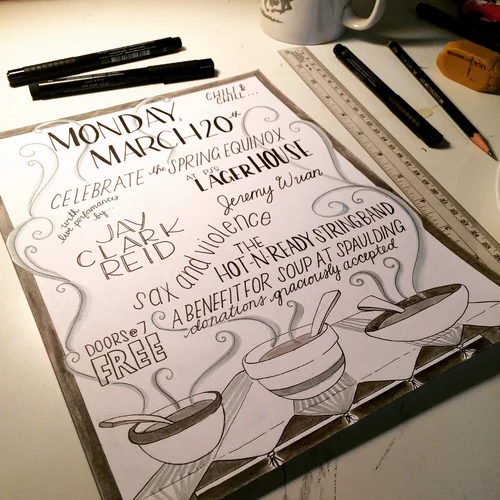 CHILI &
CHILL...
MONDAY,
MARCH 20th
CELEBRATE the SPRING EQUINOX
AT PJ'S LAGERHOUSE
with
live perfomances
by...
JAY
CLARK
REID
Jeremy Wuan
sax and violence
THE
HOT-N-READY STRINGBAND
A BENEFIT FOR SOUP AT SPAULDING
donations graciously accepted
DOORS @ 7
FREE